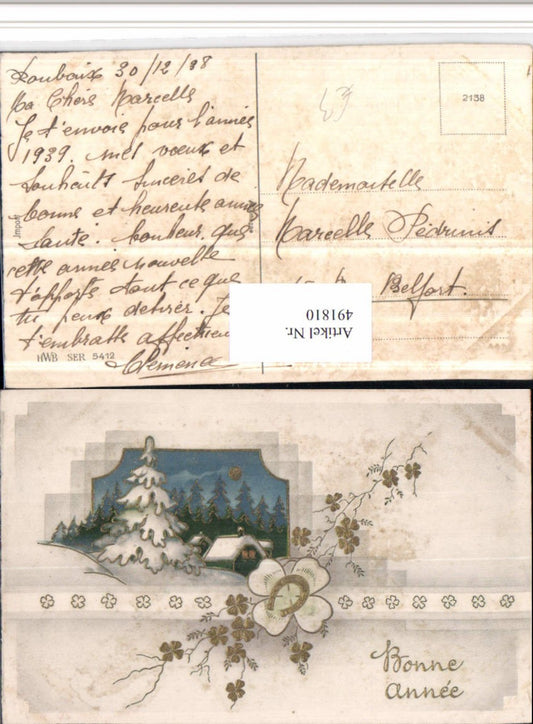 Roubaix 30/12/38
Ma Chère Marcelle
Je t'envois pour l'année
1939. mes voeux et
souhaits sinceres de
bonne et heureuse année
santé. bonheur. que
cette année nouvelle
t'apporte tout ce que
tu peux desirer. Je
t'embrasse
Clemence
HWB SER 5412
2138
Mademoiselle
Marcelle
Belfort
Artikel Nr.
491810
Bonne
année